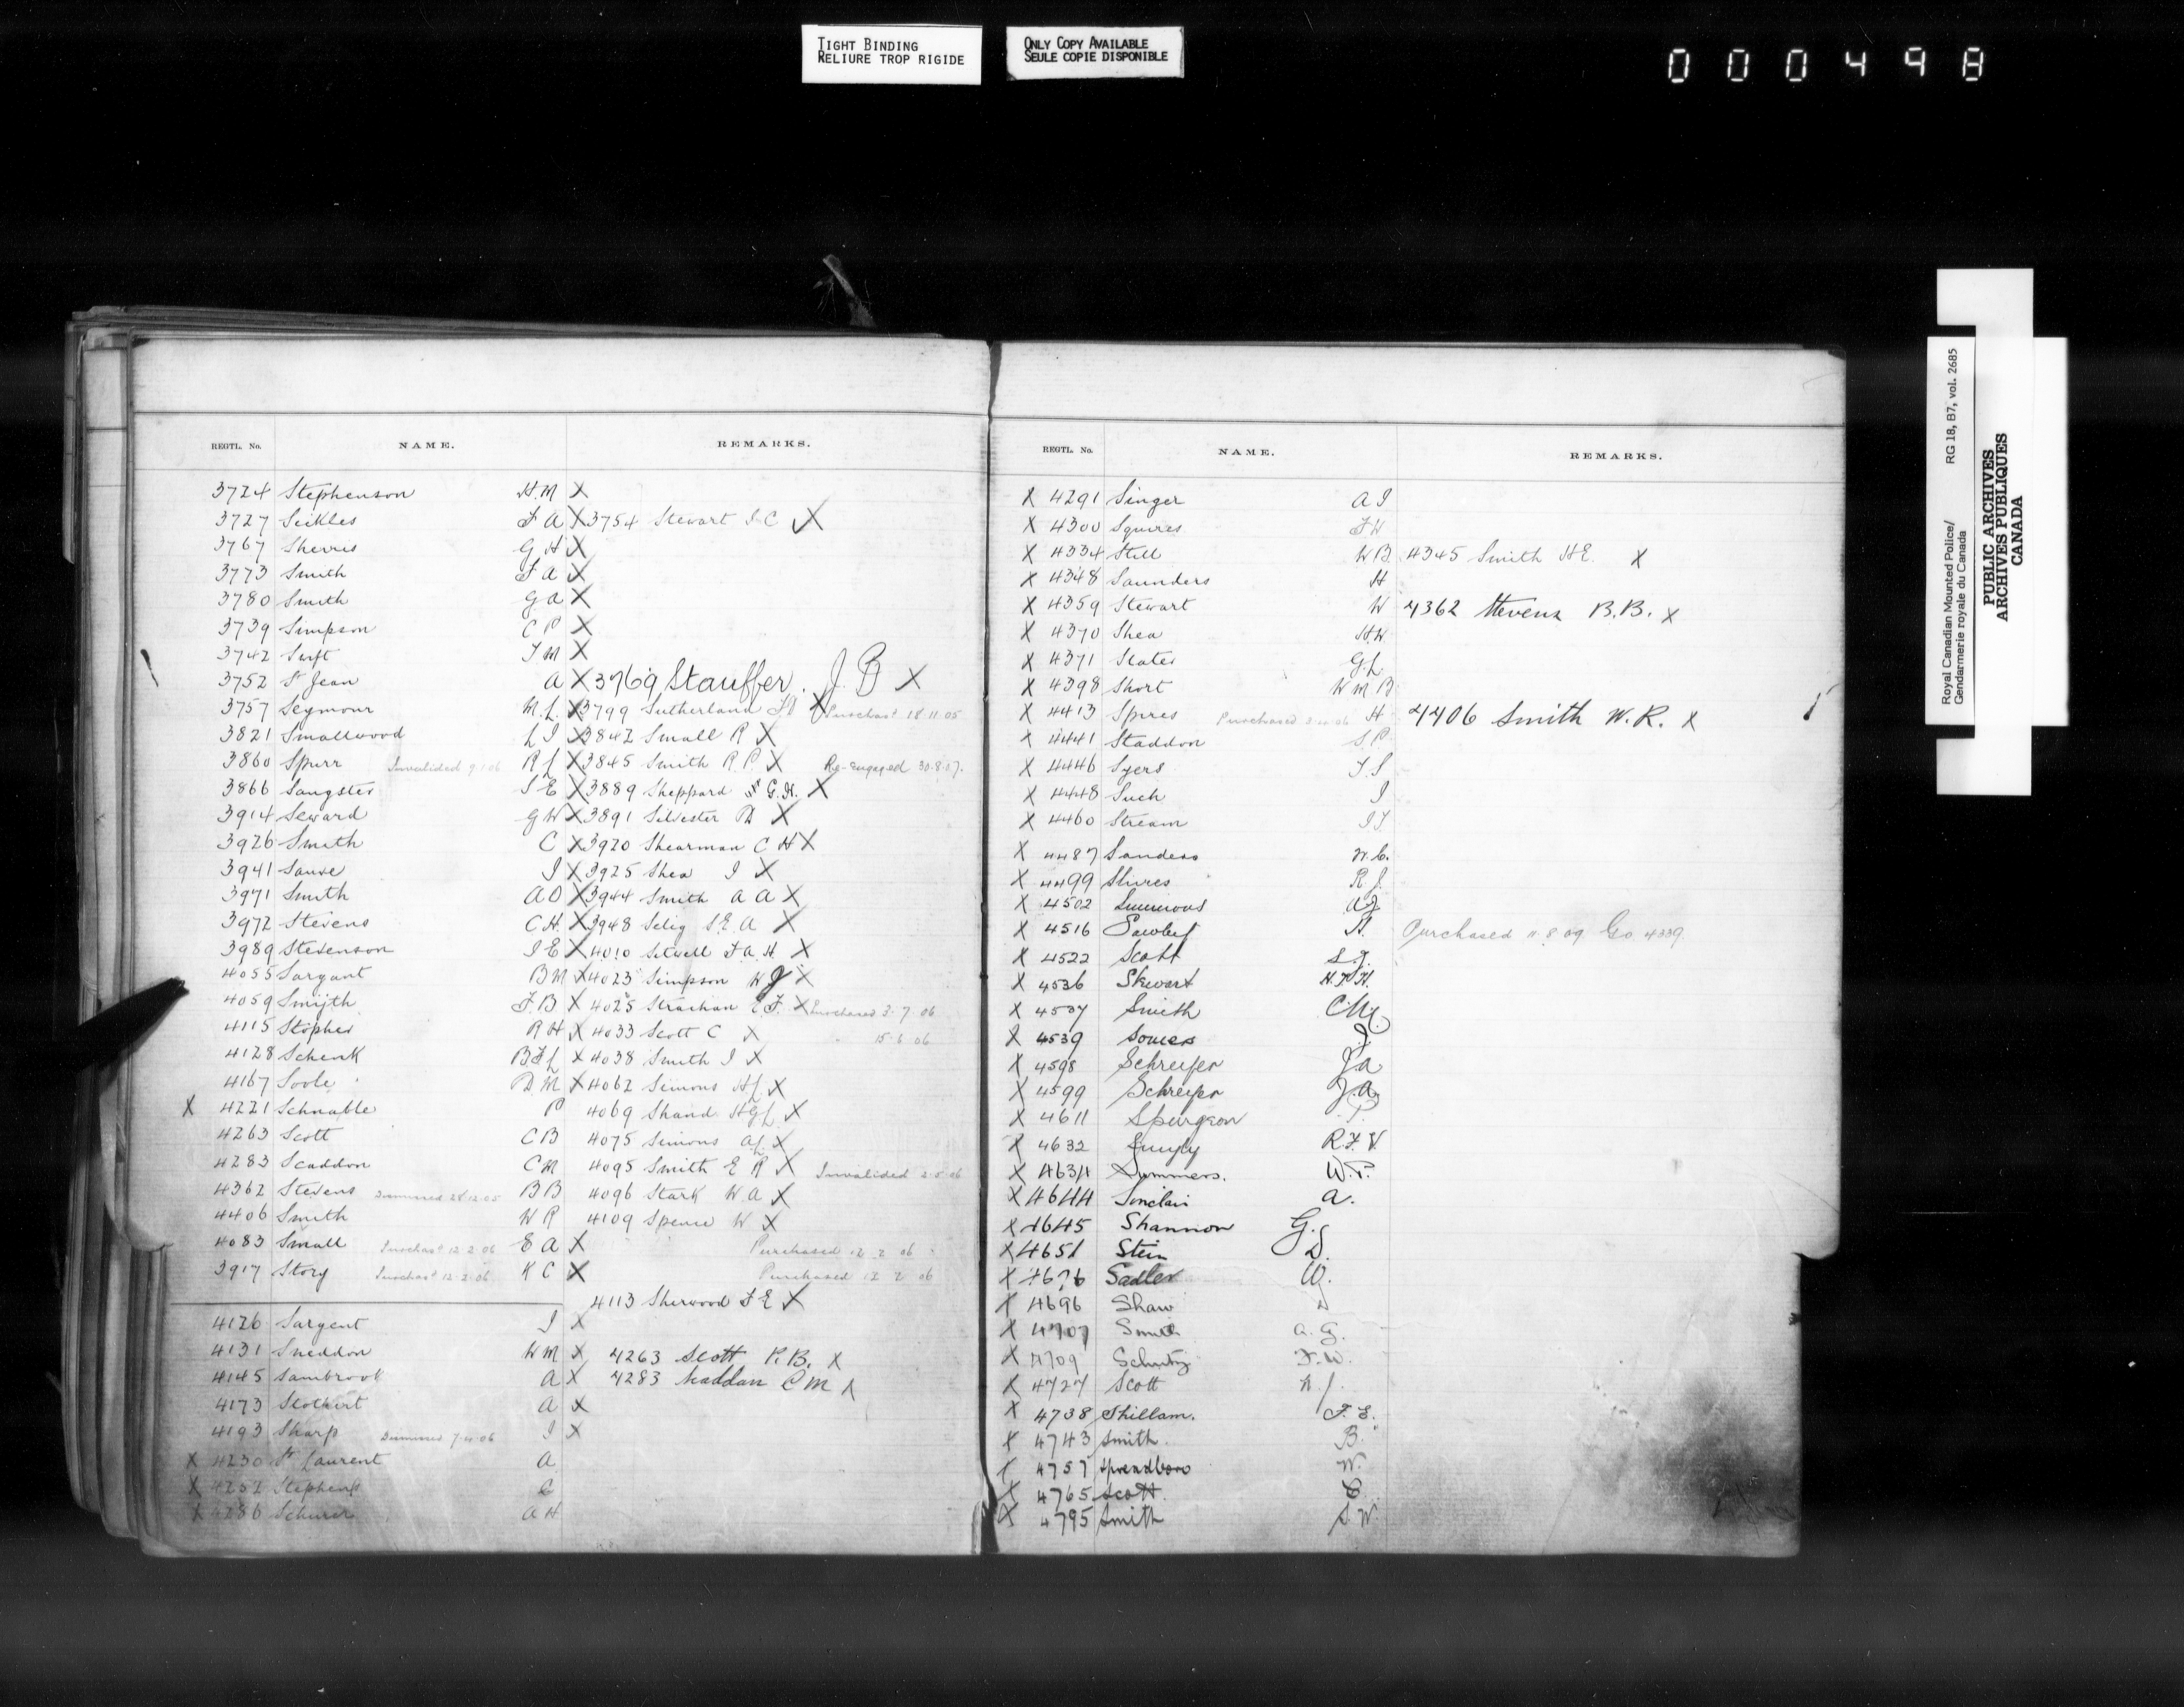 TIGHT BINDING
RELIURE TROP RIGIDE
ONLY COPY AVAILABLE
SEULE COPIE DISPONIBLE
000498
REGTL. No. NAME. REMARKS.
3724 Stephenson H.M X
3727 Seikles F A X 3754 Stewart J C X
3767 Sherris G H X
3773 Smith F A X
3780 Smith G A X
3739 Simpson C P X
3742 Swift T M X
3752 St Jean A X 3769 Stauffer. J. B X
3757 Seymour M.L. X 3799 Sutherland X Purchasd 18.11.05
3821 Smallwood L J X 3842 Small R X
3860 Spurr Invalided 9.1.06 R J X 3845 Smith R.P. X Re-engaged 30.8.07.
3866 Sangster J E X 3889 Sheppard G.H. X
3914 Seward G W X 3891 Silvester X
3926 Smith C X 3920 Shearman C H X
3941 Sauve J X 3925 Shea J X
3971 Smith A O X 3944 Smith A A X
3972 Stevens C H. X 3948 Selig S.E. A X
3989 Stevenson J E X 4010 Sitwell F A. H. X
4055 Sargant B M X 4023 Simpson W J X
4059 Smijth F. B X 4025 Strachan E. F. X Purchased 3.7.06
4115 Stopher R H X 4033 Scott C X " 15.6.06
4128 Schenk B F L X 4038 Smith J X
4167 Soole D M X 4062 Simons H L X
X 4221 Schnable P 4069 Shand H G L X
4263 Scott C B 4075 Simons A L X
4283 Scaddon C M 4095 Smith E R X Invalided 2.5.06
4362 Stevens Dismissed 28.12.05 B B 4096 Stark W. A X
4406 Smith W R 4109 Spence W X
4083 Small Purchasd 12.2.06 E A X Purchased 12.2.06
3917 Story Purchasd 12.2.06 K C X Purchased 12 2 06
4113 Sherwood F E X
4126 Sargent J X
4131 Sneddon W M X 4263 Scott P. B. X
4145 Sambrook A X 4283 Scaddan C M X
4173 Stothert A X
4193 Sharp Dismissed 7.4.06 J X
X 4230 St Laurent A
X 4252 Stephens C
X 4286 Schurer A H
REGTL. No. NAME. REMARKS.
X 4291 Singer A J
X 4300 Squires F W
X 4334 Still W B 4345 Smith H E. X
X 4348 Saunders H
X 4359 Stewart W 4362 Stevens B.B. X
X 4370 Shea H W
X 4371 Slater G. L
X 4398 Short W M B
X 4413 Spires Purchased H 4406 Smith W. R. X
X 4441 Staddon S P
X 4446 Syers T. S
X 4448 Such J
X 4460 Stream J T
X 4487 Sanders W. C.
X 4499 Shires R J.
X 4502 Simmons A J
X 4516 H. Purchased 11.8.09 Go. 4339
X 4522 Scott S. J.
X 4536 Stewart
X 4537 Smith C. M.
X 4539 Somers J.
X 4598 Schreifer J A
X 4599 Schreifer J. A.
X 4611 Spurgeon P.
X 4632 R. F. V.
X 4634 Summers. W. P.
X 4644 Sinclair A.
X 4645 Shannon G. S
X 4651 Stein D.
X 4676 Sadler W.
X 4696 Shaw D
X 4707 Smith A. G.
X 4709 Schultz F. W.
X 4727 Scott
X 4738 Shillam. F. E.
X 4743 Smith. B.
X 4757 Spreadboro W.
X 4765 Scott. C.
X 4795 Smith S. W.
Royal Canadian Mounted Police/
Gendarmerie royale du Canada
RG 18, B7, vol. 2685
PUBLIC ARCHIVES
ARCHIVES PUBLIQUES
CANADA